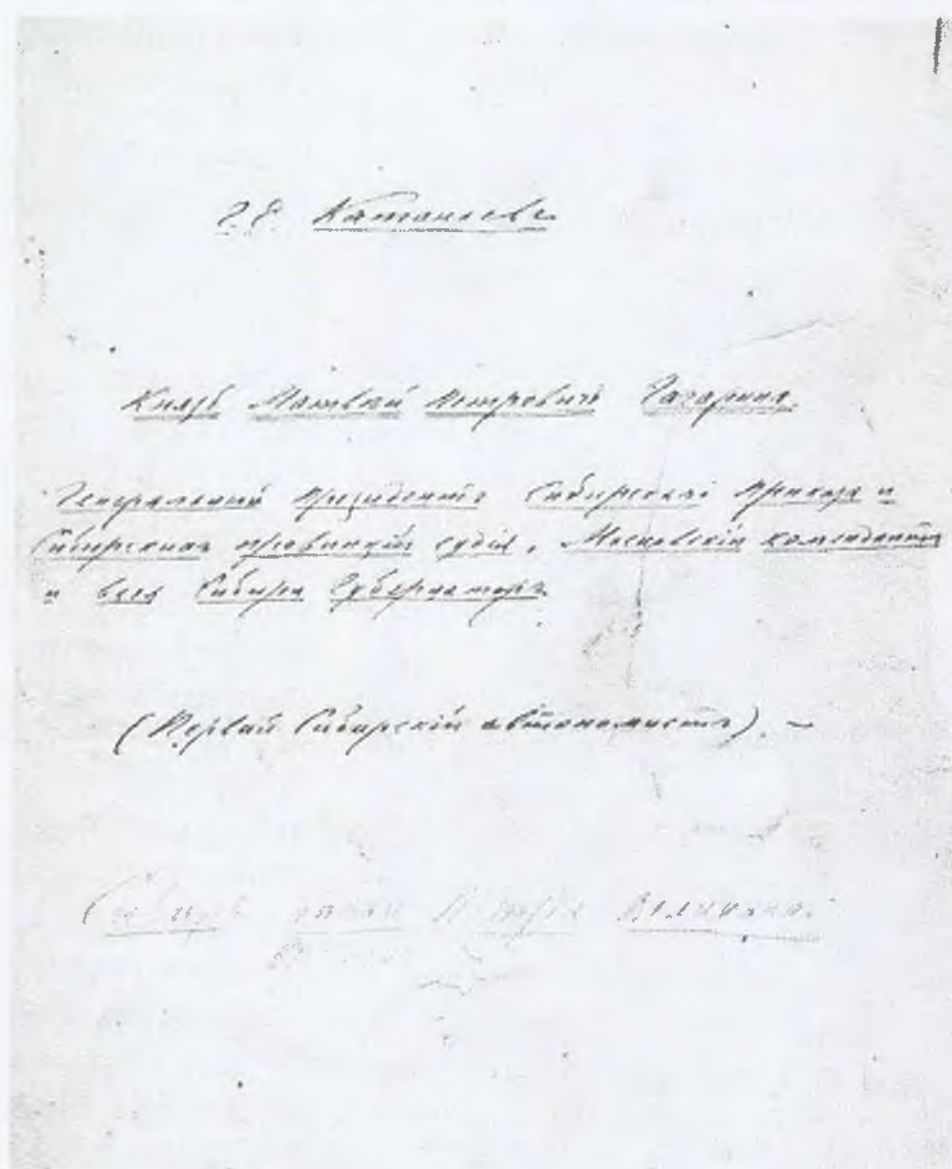 Г. Е. Катанаевъ
Князь Матвѣй Петровичъ Гагаринъ.
Генеральный президентъ Сибирскаго приказа и
Сибирскихъ провинцій судія, Московскій комендантъ
и всея Сибири Губернаторъ.
(Первый Сибирскій автономистъ). —
Сибирь Петра Великаго.